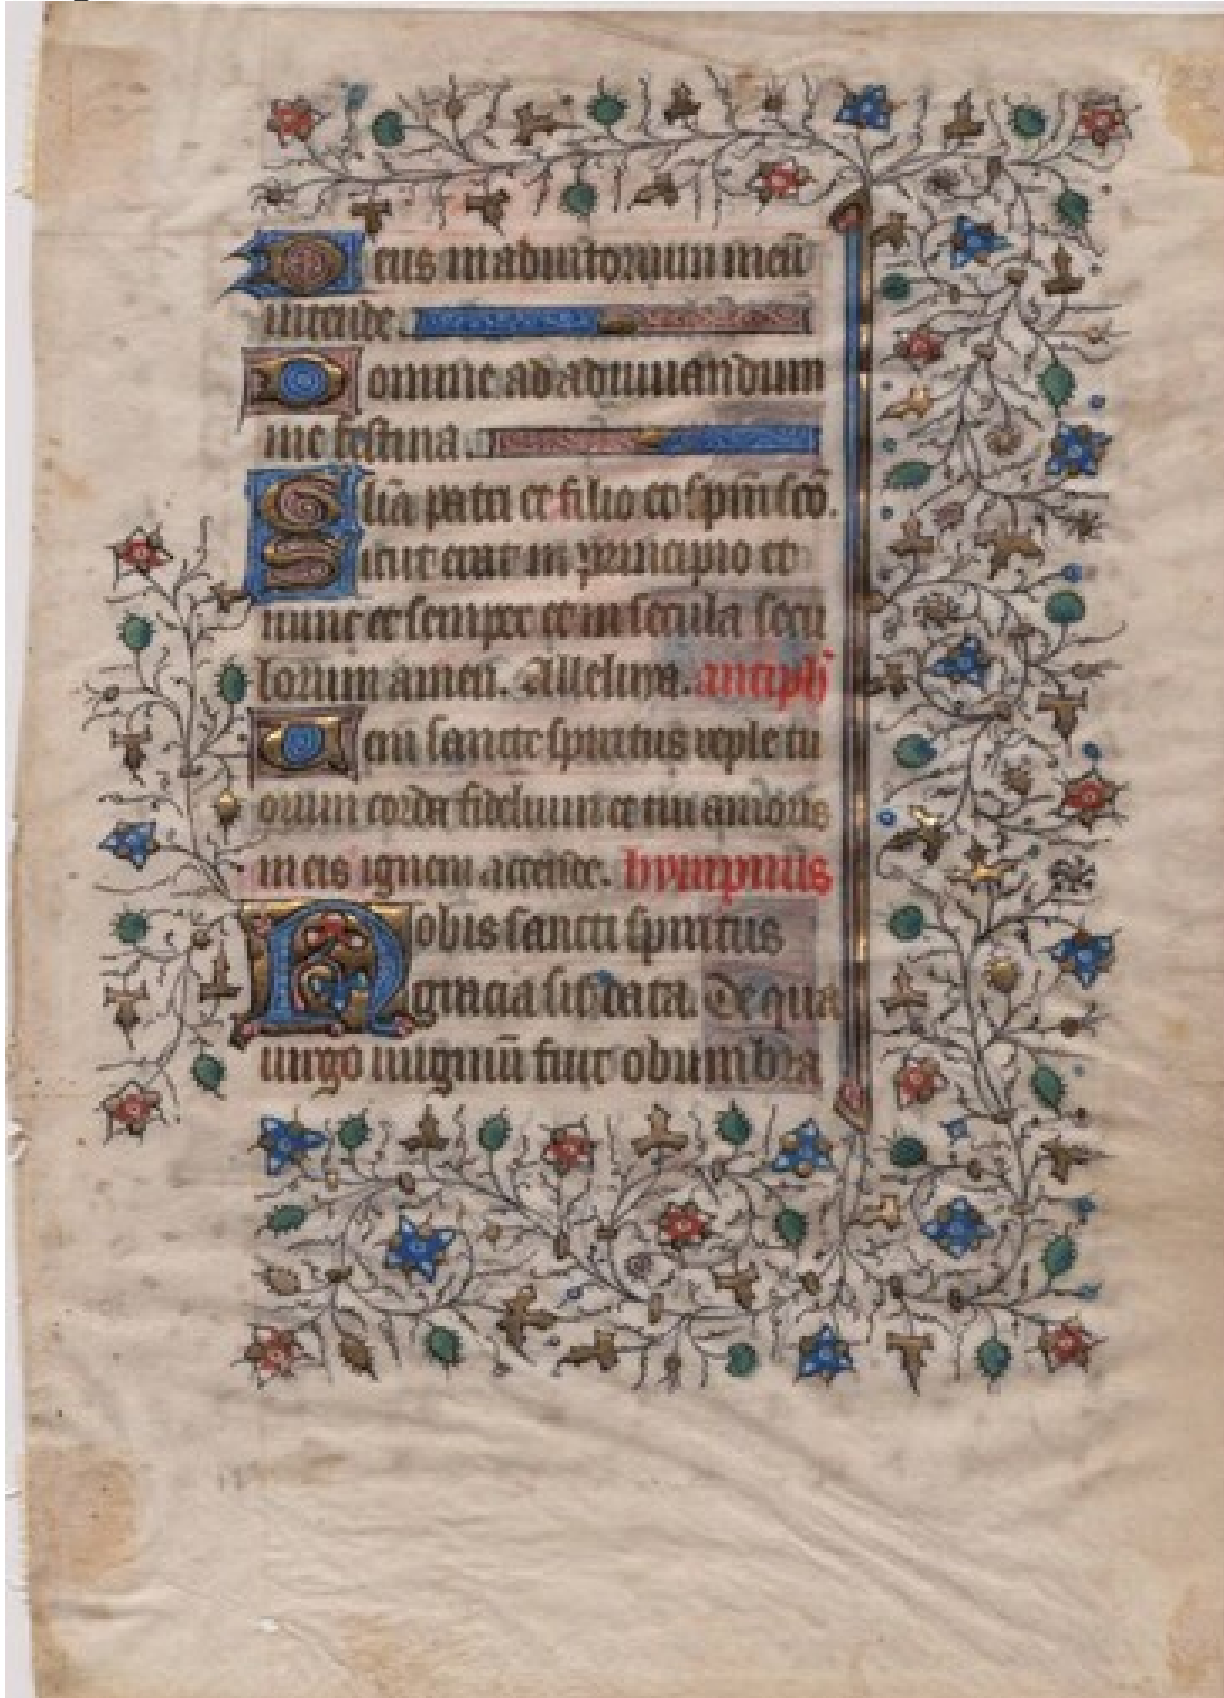 Deus in adiutorium meū
intende.
Domine ad adiuuandum
me festina.
Glīa patri et filio et spīui scō.
Sicut erat in principio et
nunc et semper et in secula secu
lorum amen. Alleluya. antiph̄
Ueni sancte spiritus reple tu
orum corda fidelium et tui amoris
in eis ignem accende. hympnus
Nobis sancti spiritus
gracia sit data. De qua
uirgo uirginū fuit obumbra